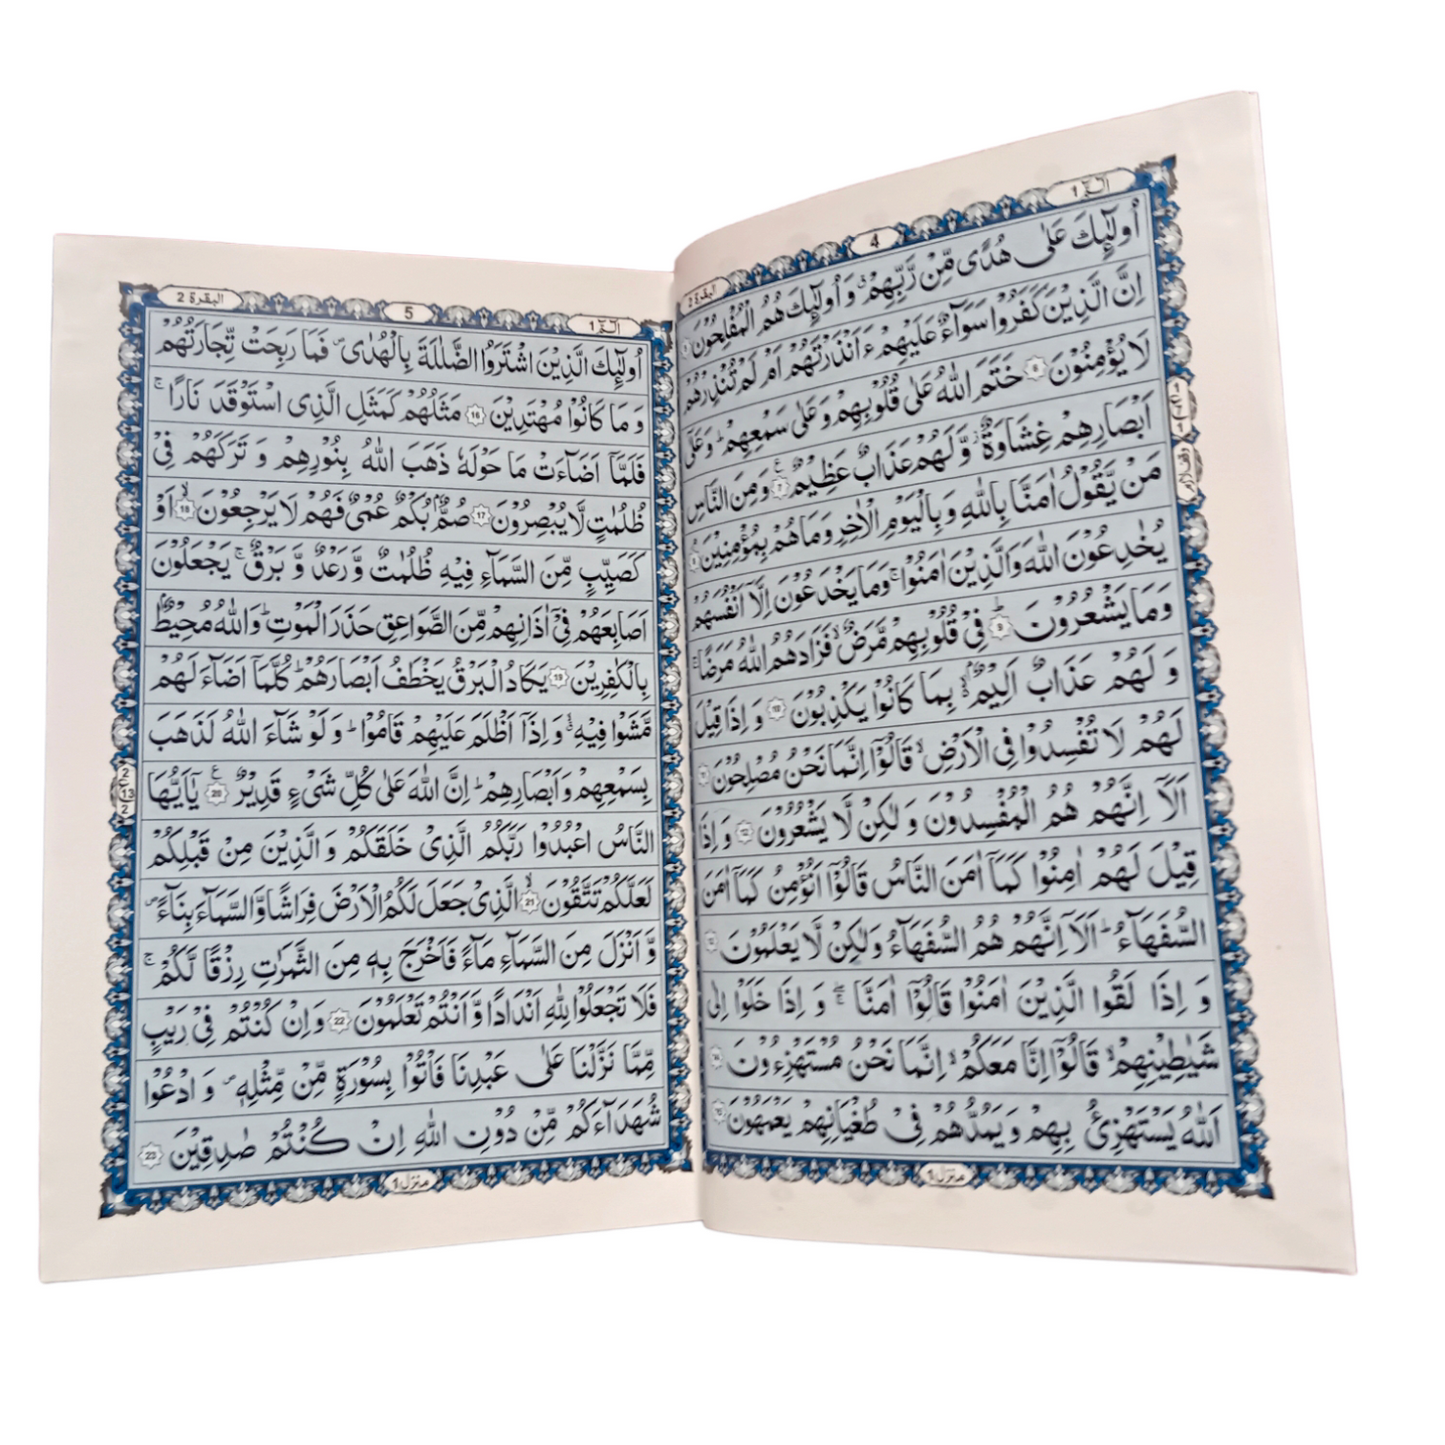 الٓمّٓ 1
4
البقرة 2
اُولٰٓئِكَ عَلٰى هُدًى مِّنْ رَّبِّهِمْ ۙ وَ اُولٰٓئِكَ هُمُ الْمُفْلِحُوْنَ 5
اِنَّ الَّذِيْنَ كَفَرُوْا سَوَآءٌ عَلَيْهِمْ ءَاَنْذَرْتَهُمْ اَمْ لَمْ تُنْذِرْهُمْ
لَا يُؤْمِنُوْنَ 6 خَتَمَ اللّٰهُ عَلٰى قُلُوْبِهِمْ وَعَلٰى سَمْعِهِمْ ؕ وَعَلٰٓى
اَبْصَارِهِمْ غِشَاوَةٌ ؗ وَّلَهُمْ عَذَابٌ عَظِيْمٌ 7 ع وَمِنَ النَّاسِ
مَنْ يَّقُوْلُ اٰمَنَّا بِاللّٰهِ وَ بِالْيَوْمِ الْاٰخِرِ وَمَا هُمْ بِمُؤْمِنِيْنَ 8
يُخٰدِعُوْنَ اللّٰهَ وَالَّذِيْنَ اٰمَنُوْا ۚ وَمَا يَخْدَعُوْنَ اِلَّاۤ اَنْفُسَهُمْ
وَمَا يَشْعُرُوْنَ 9 ؕ فِيْ قُلُوْبِهِمْ مَّرَضٌ ۙ فَزَادَهُمُ اللّٰهُ مَرَضًا ۚ
وَ لَهُمْ عَذَابٌ اَلِيْمٌۢ ۙ بِمَا كَانُوْا يَكْذِبُوْنَ 10 وَ اِذَا قِيْلَ
لَهُمْ لَا تُفْسِدُوْا فِي الْاَرْضِ ۙ قَالُوْۤا اِنَّمَا نَحْنُ مُصْلِحُوْنَ 11
اَلَاۤ اِنَّهُمْ هُمُ الْمُفْسِدُوْنَ وَ لٰكِنْ لَّا يَشْعُرُوْنَ 12 وَ اِذَا
قِيْلَ لَهُمْ اٰمِنُوْا كَمَاۤ اٰمَنَ النَّاسُ قَالُوْۤا اَنُؤْمِنُ كَمَاۤ اٰمَنَ
السُّفَهَآءُ ؕ اَلَاۤ اِنَّهُمْ هُمُ السُّفَهَآءُ وَلٰكِنْ لَّا يَعْلَمُوْنَ 13
وَ اِذَا لَقُوا الَّذِيْنَ اٰمَنُوْا قَالُوْۤا اٰمَنَّا ۖۚ وَ اِذَا خَلَوْا اِلٰى
شَيٰطِيْنِهِمْ ۙ قَالُوْۤا اِنَّا مَعَكُمْ ۙ اِنَّمَا نَحْنُ مُسْتَهْزِءُوْنَ 14
اَللّٰهُ يَسْتَهْزِئُ بِهِمْ وَ يَمُدُّهُمْ فِيْ طُغْيَانِهِمْ يَعْمَهُوْنَ 15
منزل 1
وقف لازم
الٓمّٓ 1
5
البقرة 2
اُولٰٓئِكَ الَّذِيْنَ اشْتَرَوُا الضَّلٰلَةَ بِالْهُدٰى ۪ فَمَا رَبِحَتْ تِّجَارَتُهُمْ
وَ مَا كَانُوْا مُهْتَدِيْنَ 16 مَثَلُهُمْ كَمَثَلِ الَّذِي اسْتَوْقَدَ نَارًا ۚ
فَلَمَّاۤ اَضَآءَتْ مَا حَوْلَهٗ ذَهَبَ اللّٰهُ بِنُوْرِهِمْ وَ تَرَكَهُمْ فِيْ
ظُلُمٰتٍ لَّا يُبْصِرُوْنَ 17 صُمٌّۢ بُكْمٌ عُمْيٌ فَهُمْ لَا يَرْجِعُوْنَ 18 ۙ اَوْ
كَصَيِّبٍ مِّنَ السَّمَآءِ فِيْهِ ظُلُمٰتٌ وَّ رَعْدٌ وَّ بَرْقٌ ۚ يَجْعَلُوْنَ
اَصَابِعَهُمْ فِيْۤ اٰذَانِهِمْ مِّنَ الصَّوَاعِقِ حَذَرَ الْمَوْتِ ؕ وَاللّٰهُ مُحِيْطٌۢ
بِالْكٰفِرِيْنَ 19 يَكَادُ الْبَرْقُ يَخْطَفُ اَبْصَارَهُمْ ؕ كُلَّمَاۤ اَضَآءَ لَهُمْ
مَّشَوْا فِيْهِ ۙۗ وَ اِذَاۤ اَظْلَمَ عَلَيْهِمْ قَامُوْا ؕ وَ لَوْ شَآءَ اللّٰهُ لَذَهَبَ
بِسَمْعِهِمْ وَ اَبْصَارِهِمْ ؕ اِنَّ اللّٰهَ عَلٰى كُلِّ شَيْءٍ قَدِيْرٌ 20 ع يٰۤاَيُّهَا
النَّاسُ اعْبُدُوْا رَبَّكُمُ الَّذِيْ خَلَقَكُمْ وَ الَّذِيْنَ مِنْ قَبْلِكُمْ
لَعَلَّكُمْ تَتَّقُوْنَ 21 ۙ الَّذِيْ جَعَلَ لَكُمُ الْاَرْضَ فِرَاشًا وَّ السَّمَآءَ بِنَآءً ۪
وَّ اَنْزَلَ مِنَ السَّمَآءِ مَآءً فَاَخْرَجَ بِهٖ مِنَ الثَّمَرٰتِ رِزْقًا لَّكُمْ ۚ
فَلَا تَجْعَلُوْا لِلّٰهِ اَنْدَادًا وَّ اَنْتُمْ تَعْلَمُوْنَ 22 وَ اِنْ كُنْتُمْ فِيْ رَيْبٍ
مِّمَّا نَزَّلْنَا عَلٰى عَبْدِنَا فَاْتُوْا بِسُوْرَةٍ مِّنْ مِّثْلِهٖ ۪ وَ ادْعُوْا
شُهَدَآءَكُمْ مِّنْ دُوْنِ اللّٰهِ اِنْ كُنْتُمْ صٰدِقِيْنَ 23
منزل 1
2
13
2